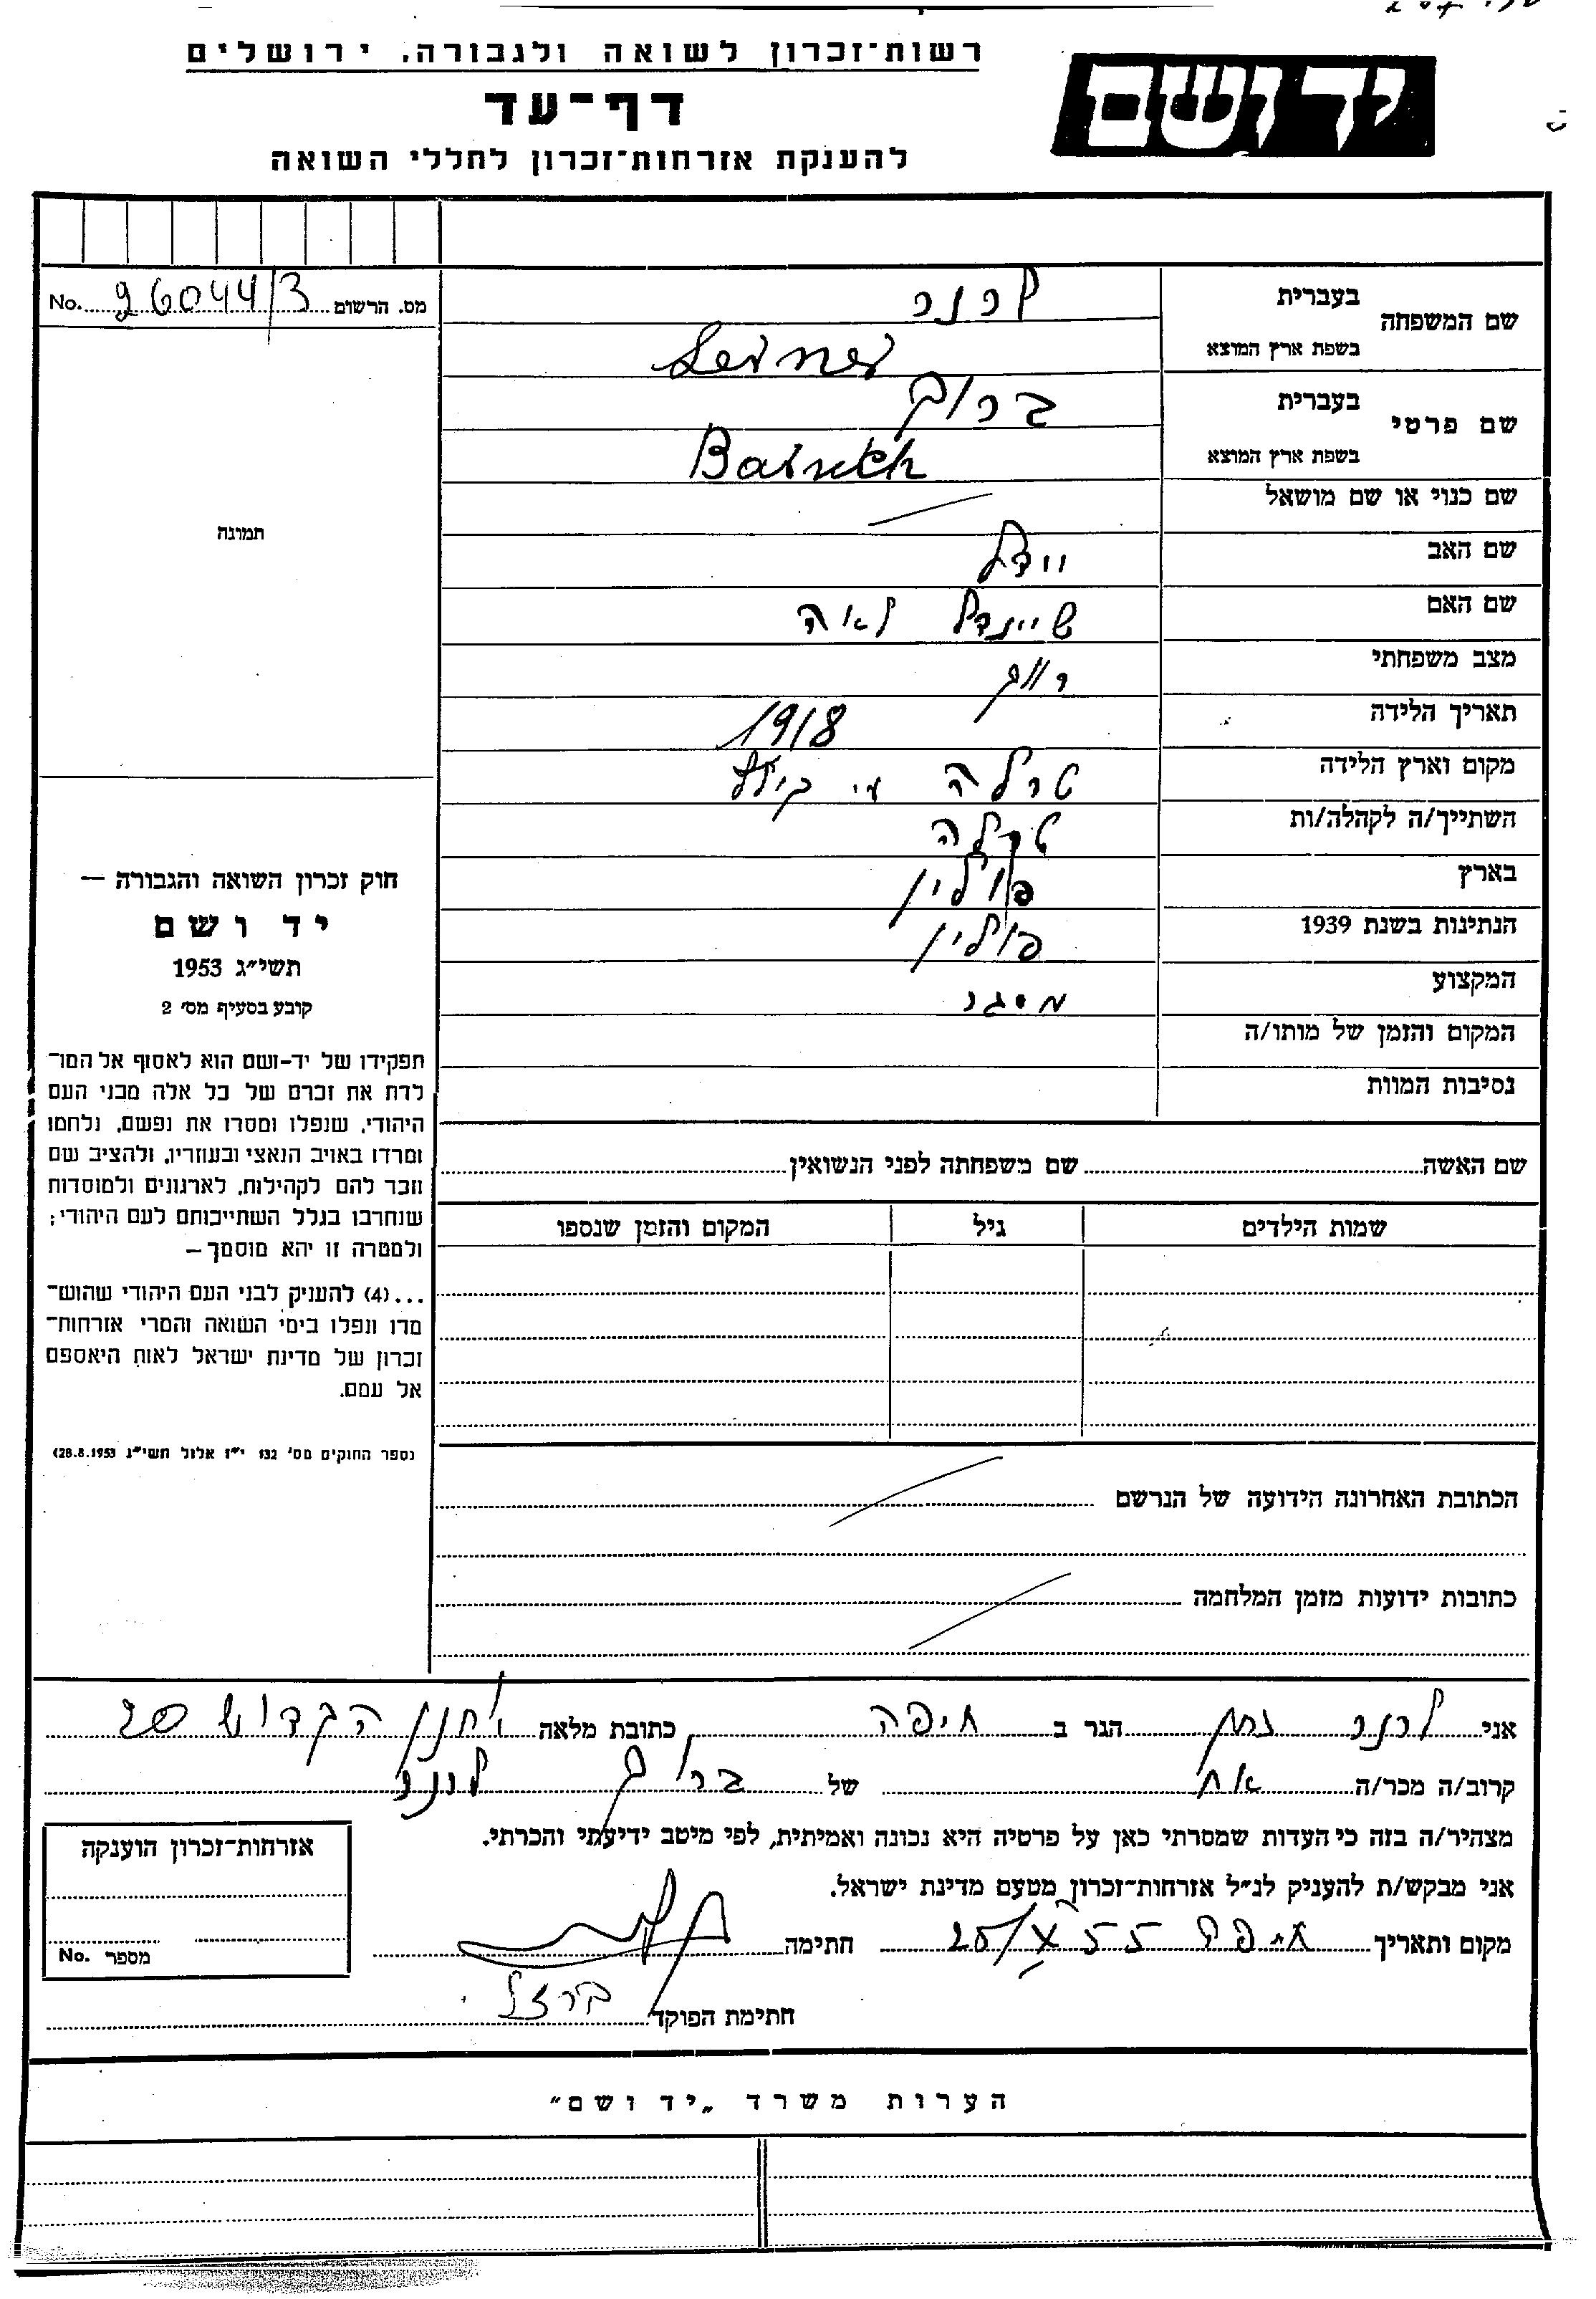 רשות־זכרון לשואה ולגבורה, ירושלים
יד ושם
דף־עד
להענקת אזרחות־זכרון לחללי השואה
מס. הרשום 26044/3 No.
שם המשפחה בעברית לרנר
בשפת ארץ המוצא Lerner
שם פרטי בעברית ברוך
בשפת ארץ המוצא Baruch
שם כנוי או שם מושאל
תמונה
שם האב יידל
שם האם שיינדל לאה
מצב משפחתי רווק
תאריך הלידה 1918
מקום וארץ הלידה טרלה ע"י
השתייך/ה לקהלה/ות טרלה
בארץ פולין
הנתינות בשנת 1939 פולין
המקצוע מסגר
המקום והזמן של מותו/ה
נסיבות המוות
חוק זכרון השואה והגבורה —
יד ושם
תשי״ג 1953
קובע בסעיף מס׳ 2
תפקידו של יד-ושם הוא לאסוף אל המו־
לדת את זכרם של כל אלה מבני העם
היהודי, שנפלו ומסרו את נפשם, נלחמו
ומרדו באויב הנאצי ובעוזריו, ולהציב שם
וזכר להם לקהילות, לארגונים ולמוסדות
שנחרבו בגלל השתייכותם לעם היהודי;
ולמטרה זו יהא מוסמך—
...(4) להעניק לבני העם היהודי שהוש־
מדו ונפלו בימי השואה והמרי אזרחות־
זכרון של מדינת ישראל לאות היאספם
אל עמם.
נספר החוקים מס׳ 132 י״ז אלול תשי״ג 28.8.1953)
שם האשה שם משפחתה לפני הנשואין
שמות הילדים גיל המקום והזמן שנספו
הכתובת האחרונה הידועה של הנרשם
כתובות ידועות מזמן המלחמה
אני לרנר נתן הגר ב חיפה כתובת מלאה יוחנן הקדוש 20
קרוב/ה מכר/ה אח של ברוך לרנר
מצהיר/ה בזה כי העדות שמסרתי כאן על פרטיה היא נכונה ואמיתית, לפי מיטב ידיעתי והכרתי.
אני מבקש/ת להעניק לנ״ל אזרחות־זכרון מטעם מדינת ישראל.
מקום ותאריך חיפה 25/X 55 חתימה
חתימת הפוקד ברזל
אזרחות־זכרון הוענקה
מספר No.
הערות משרד „יד ושם״